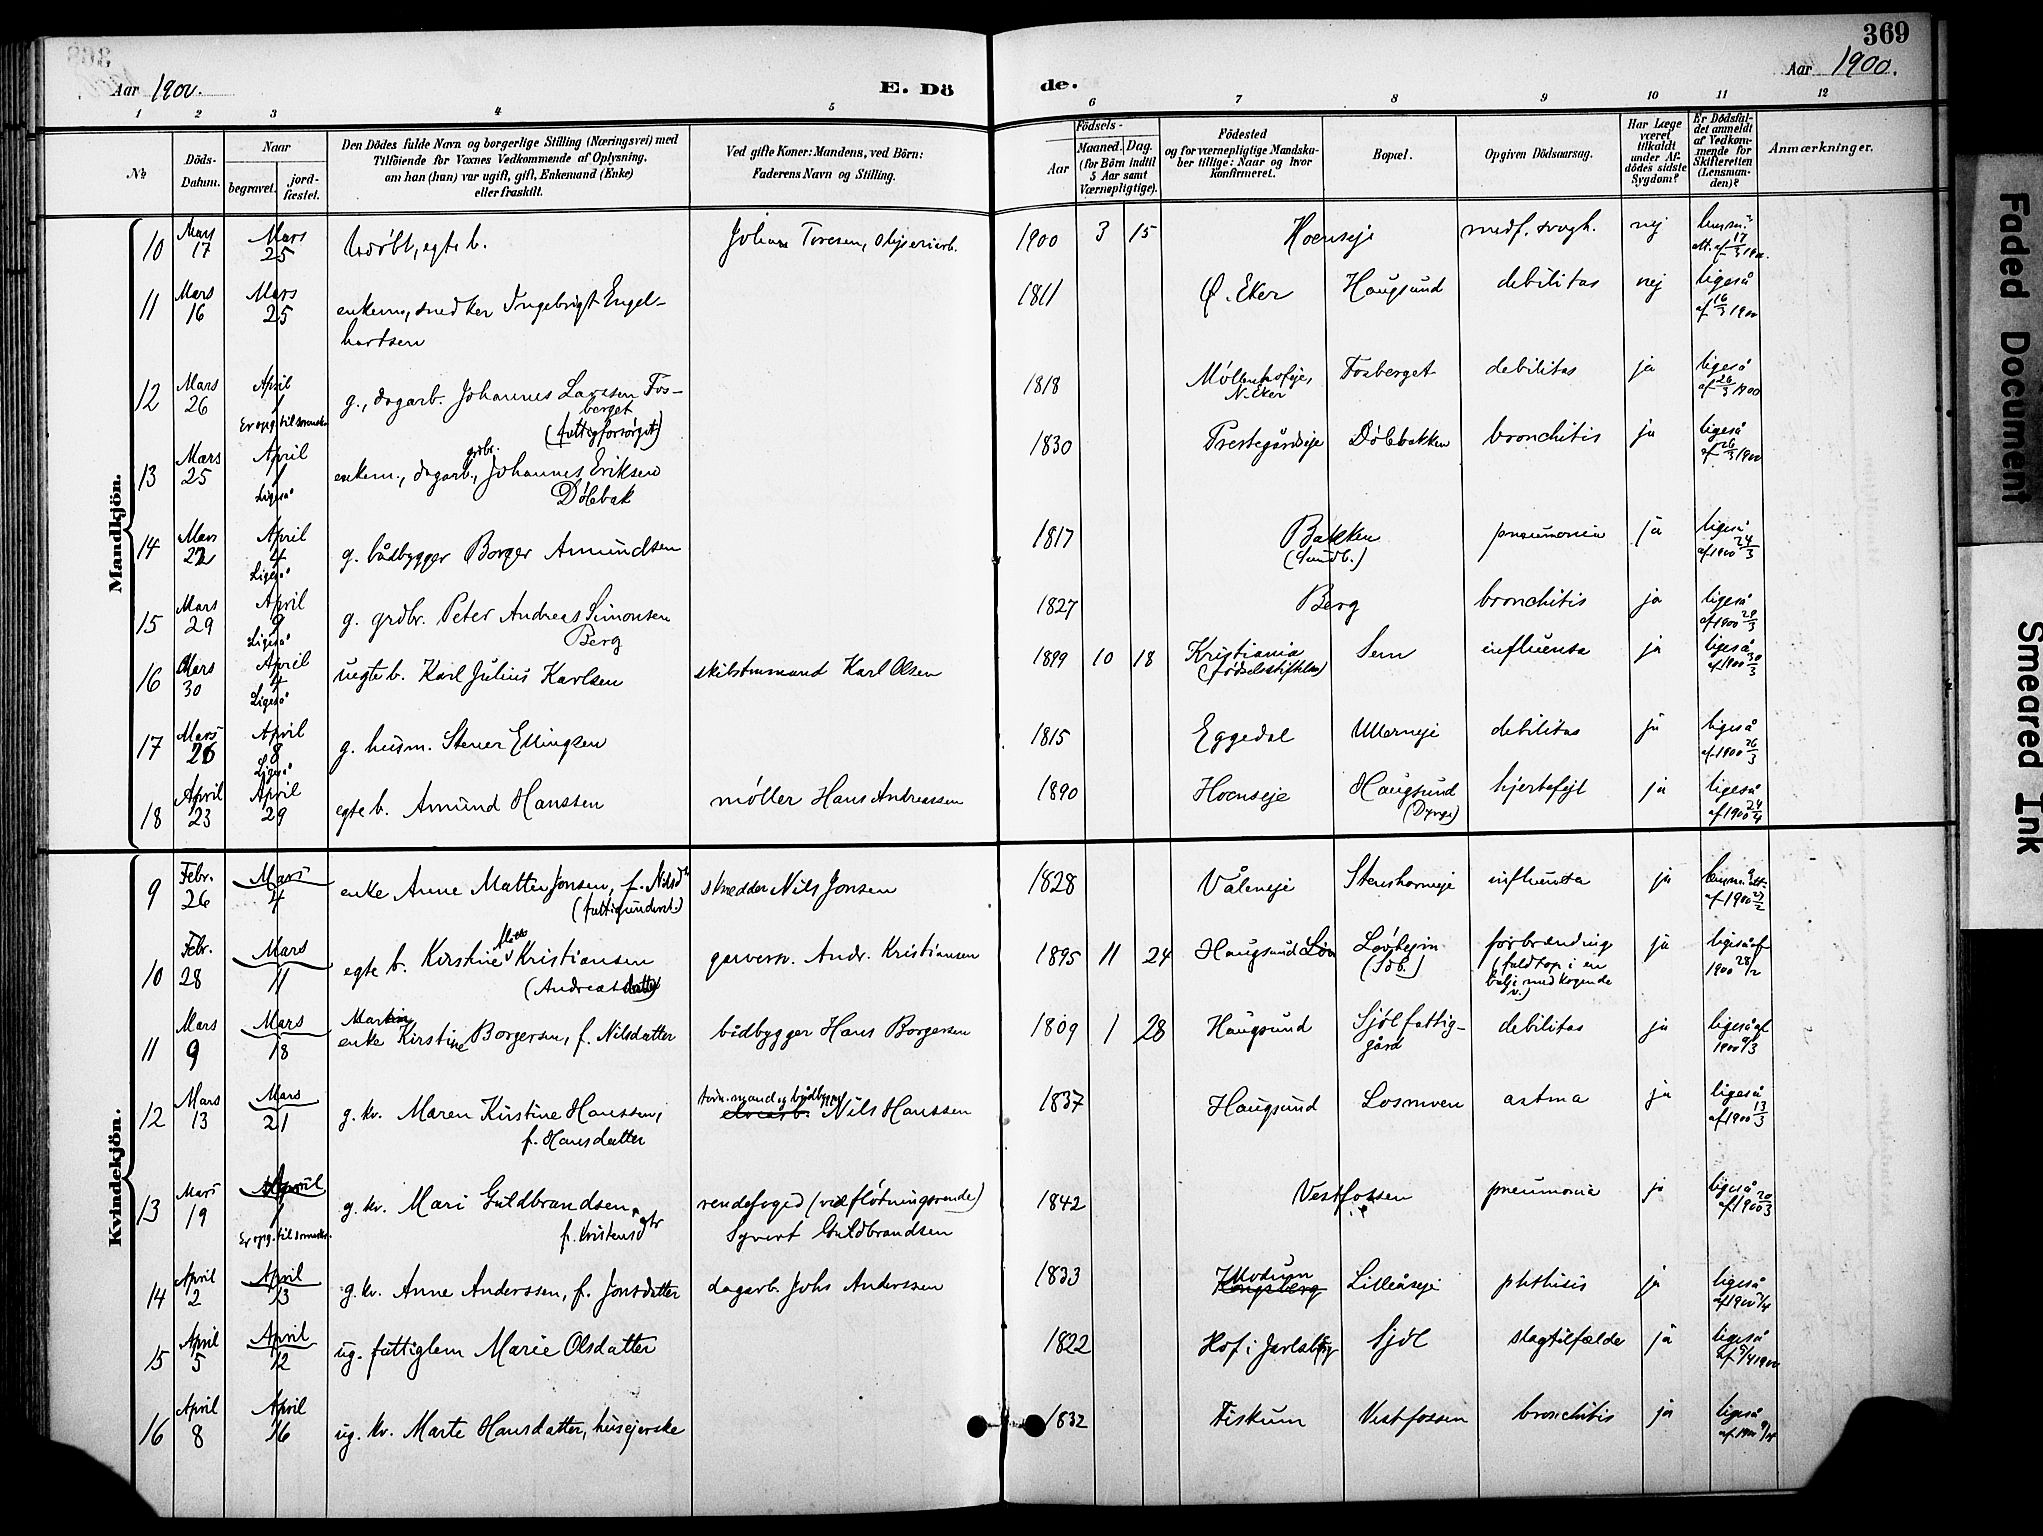 369
Aar 1900.
E. Dö de.
Aar 1900.
1 2 3 4 5 6 7 8 9 10 11 12
№
Döds-
Datum.
Naar
begravet.
jord-
fæstet.
Den Dödes fulde Navn og borgerlige Stilling (Næringsvei) med
Tilföiende for Voxnes Vedkommende af Oplysning,
om han (hun) var ugift, gift, Enkemand (Enke)
eller fraskilt.
Ved gifte Koner: Mandens, ved Börn:
Faderens Navn og Stilling.
Födsels-
Aar
Maaned. Dag.
(for Börn indtil
5 Aar samt
Værnepligtige).
Födested
og for værnepligtige Mandska-
ber tillige: Naar og hvor
konfirmeret.
Bopæl.
Opgiven Dödsaarsag.
Har Læge
været
tilkaldt
under Af-
dödes sidste
Sygdom?
Er Dödsfal-
det anmeldt
af Vedkom-
mende for
Skifteretten
(Lensman-
den)?
Anmærkninger.
Mandkjön.
10 Mars 17 Mars 25 udøbt, egte b. Johan Toresen, sliperiarb. 1900 3 15 Hoenseje medf. svagh. nej
11 Mars 16 Mars 25 enkem., snedker Ingebrigt Engel-
hartsen 1811 Ø. Eker Haugsund debilitas nej ligeså af 16/3 1900
12 Mars 26 April 1 g., dagarb. Johannes Larssen Fos-
berget
(fattigforsørget) 1818 N. Eker Fosberget debilitas ja ligeså af 26/3 1900
13 Mars 25 April 1 Ligeså enkem., dagarb., grdbr. Johannes Eriksen
Dølebak 1830 Prestegårdseje Dølebakken bronchitis ja ligeså af 26/3 1900
14 Mars 22 April 4 Ligeså g. bådbygger Borger Amundsen 1817 Bakken
(Sundb.) pneumonia ja ligeså af 1900 24/3
15 Mars 29 April 9 Ligeså g. grdbr. Peter Andreas Simonsen
Berg 1827 Berg bronchitis ja ligeså af 1900 29/3
16 Mars 30 April 4 Ligeså uegte b. Karl Julius Karlsen skibstømmand Karl Olsen 1899 10 18 Kristiania
(fødselsstiftelse) Sem influensa ja ligeså af 1900 30/3
17 Mars 26 April 8 Ligeså g. husm. Stener Ellingsen 1815 Eggedal Ullerneje debilitas ja ligeså af 1900 26/3
18 April 23 April 29 egte b. Amund Hanssen møller Hans Andreassen 1890 Hoenseje Haugsund hjertefejl ja ligeså af 1900 24/4
Kvindekjön.
9 Febr. 26 Mars 4 enke Anne Mattea Jonsen, f. Nilsd.
(fattigunderst.) skrædder Nils Jonsen 1828 Våleneje Stenshorneje influensa ja af 1900 27/2
10 Febr. 28 Mars 11 egte b. Kirstine Kristiansen
(Andreasdatter) garversv. Andr. Kristiansen 1895 11 24 Haugsund Løvhejm forbrænding
(faldt op i en
balje med kogende
v.) ja ligeså af 1900 28/2
11 Mars 9 Mars 18 enke Kirstine Borgersen, f. Nilsdatter bådbygger Hans Borgersen 1809 1 28 Haugsund Sjøl fattig-
gård debilitas ja ligeså af 1900 9/3
12 Mars 13 Mars 21 g. kv. Maren Kirstine Hanssen,
f. Hansdatter Nils Hanssen 1837 Haugsund Losmoen astma ja ligeså af 1900 13/3
13 Mars 19 April 1 g. kv. Mari Guldbrandsen,
f. Kristensdtr rendefoged (ved fløtningsrende)
Syvert Guldbrandsen 1842 Vestfossen pneumonia ja ligeså af 1900 20/3
14 April 2 April 13 g. kv. Anne Anderssen, f. Jonsdatter dagarb. Johs Anderssen 1833 Modum Kongsberg Lilleåseje phthisis ja ligeså af 1900 2/4
15 April 5 April 12 ug. fattiglem Marie Olsdatter 1822 Hof i Jarlsberg Sjøl slagtilfælde ja ligeså af 5/4 1900
16 April 8 April 16 ug. kv. Marte Hansdatter, husejerske 1832 Fiskum Vestfossen bronchitis ja ligeså af 1900 9/4
Faded Document
Smeared Ink